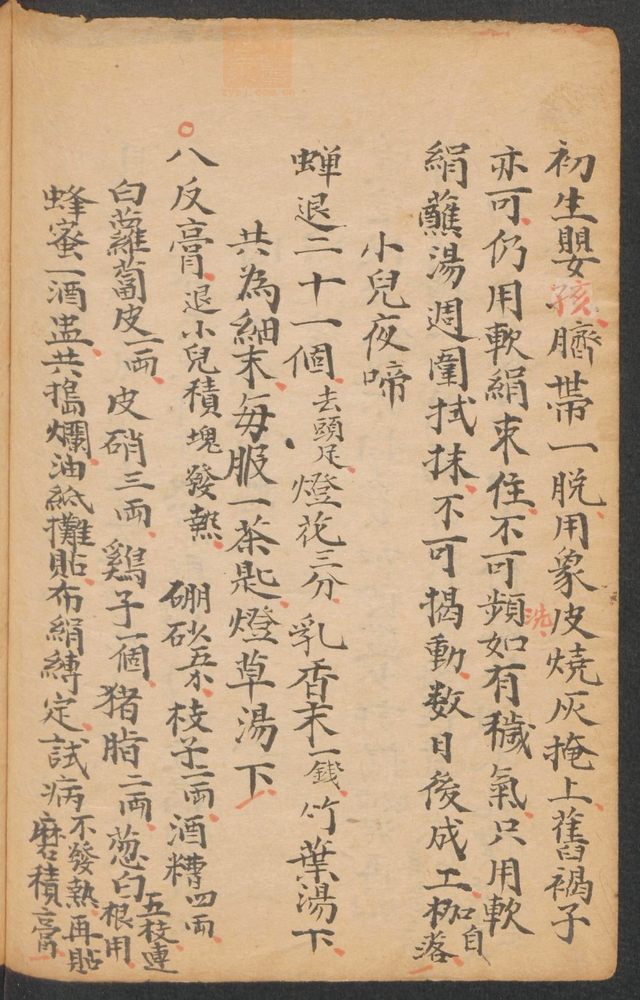 初生嬰孩臍帶一脫用象皮燒灰掩上舊褐子
亦可仍用軟絹束住不可頻洗如有穢氣只用軟
絹蘸湯週圍拭抹不可揭動数日後成工枷自落
小兒夜啼
蝉退二十一個去頭足燈花三分乳香末一錢竹葉湯下
共為細末每服一茶匙燈草湯下
八反膏退小兒積塊發熱硼砂五分枝子二両酒糟四両
白蘿蔔皮一両皮硝三両鷄子一個猪脂二両葱白五枝連根用
蜂蜜一酒盅共搗爛油紙攤貼布絹縛定試病不發熱再貼磨積膏